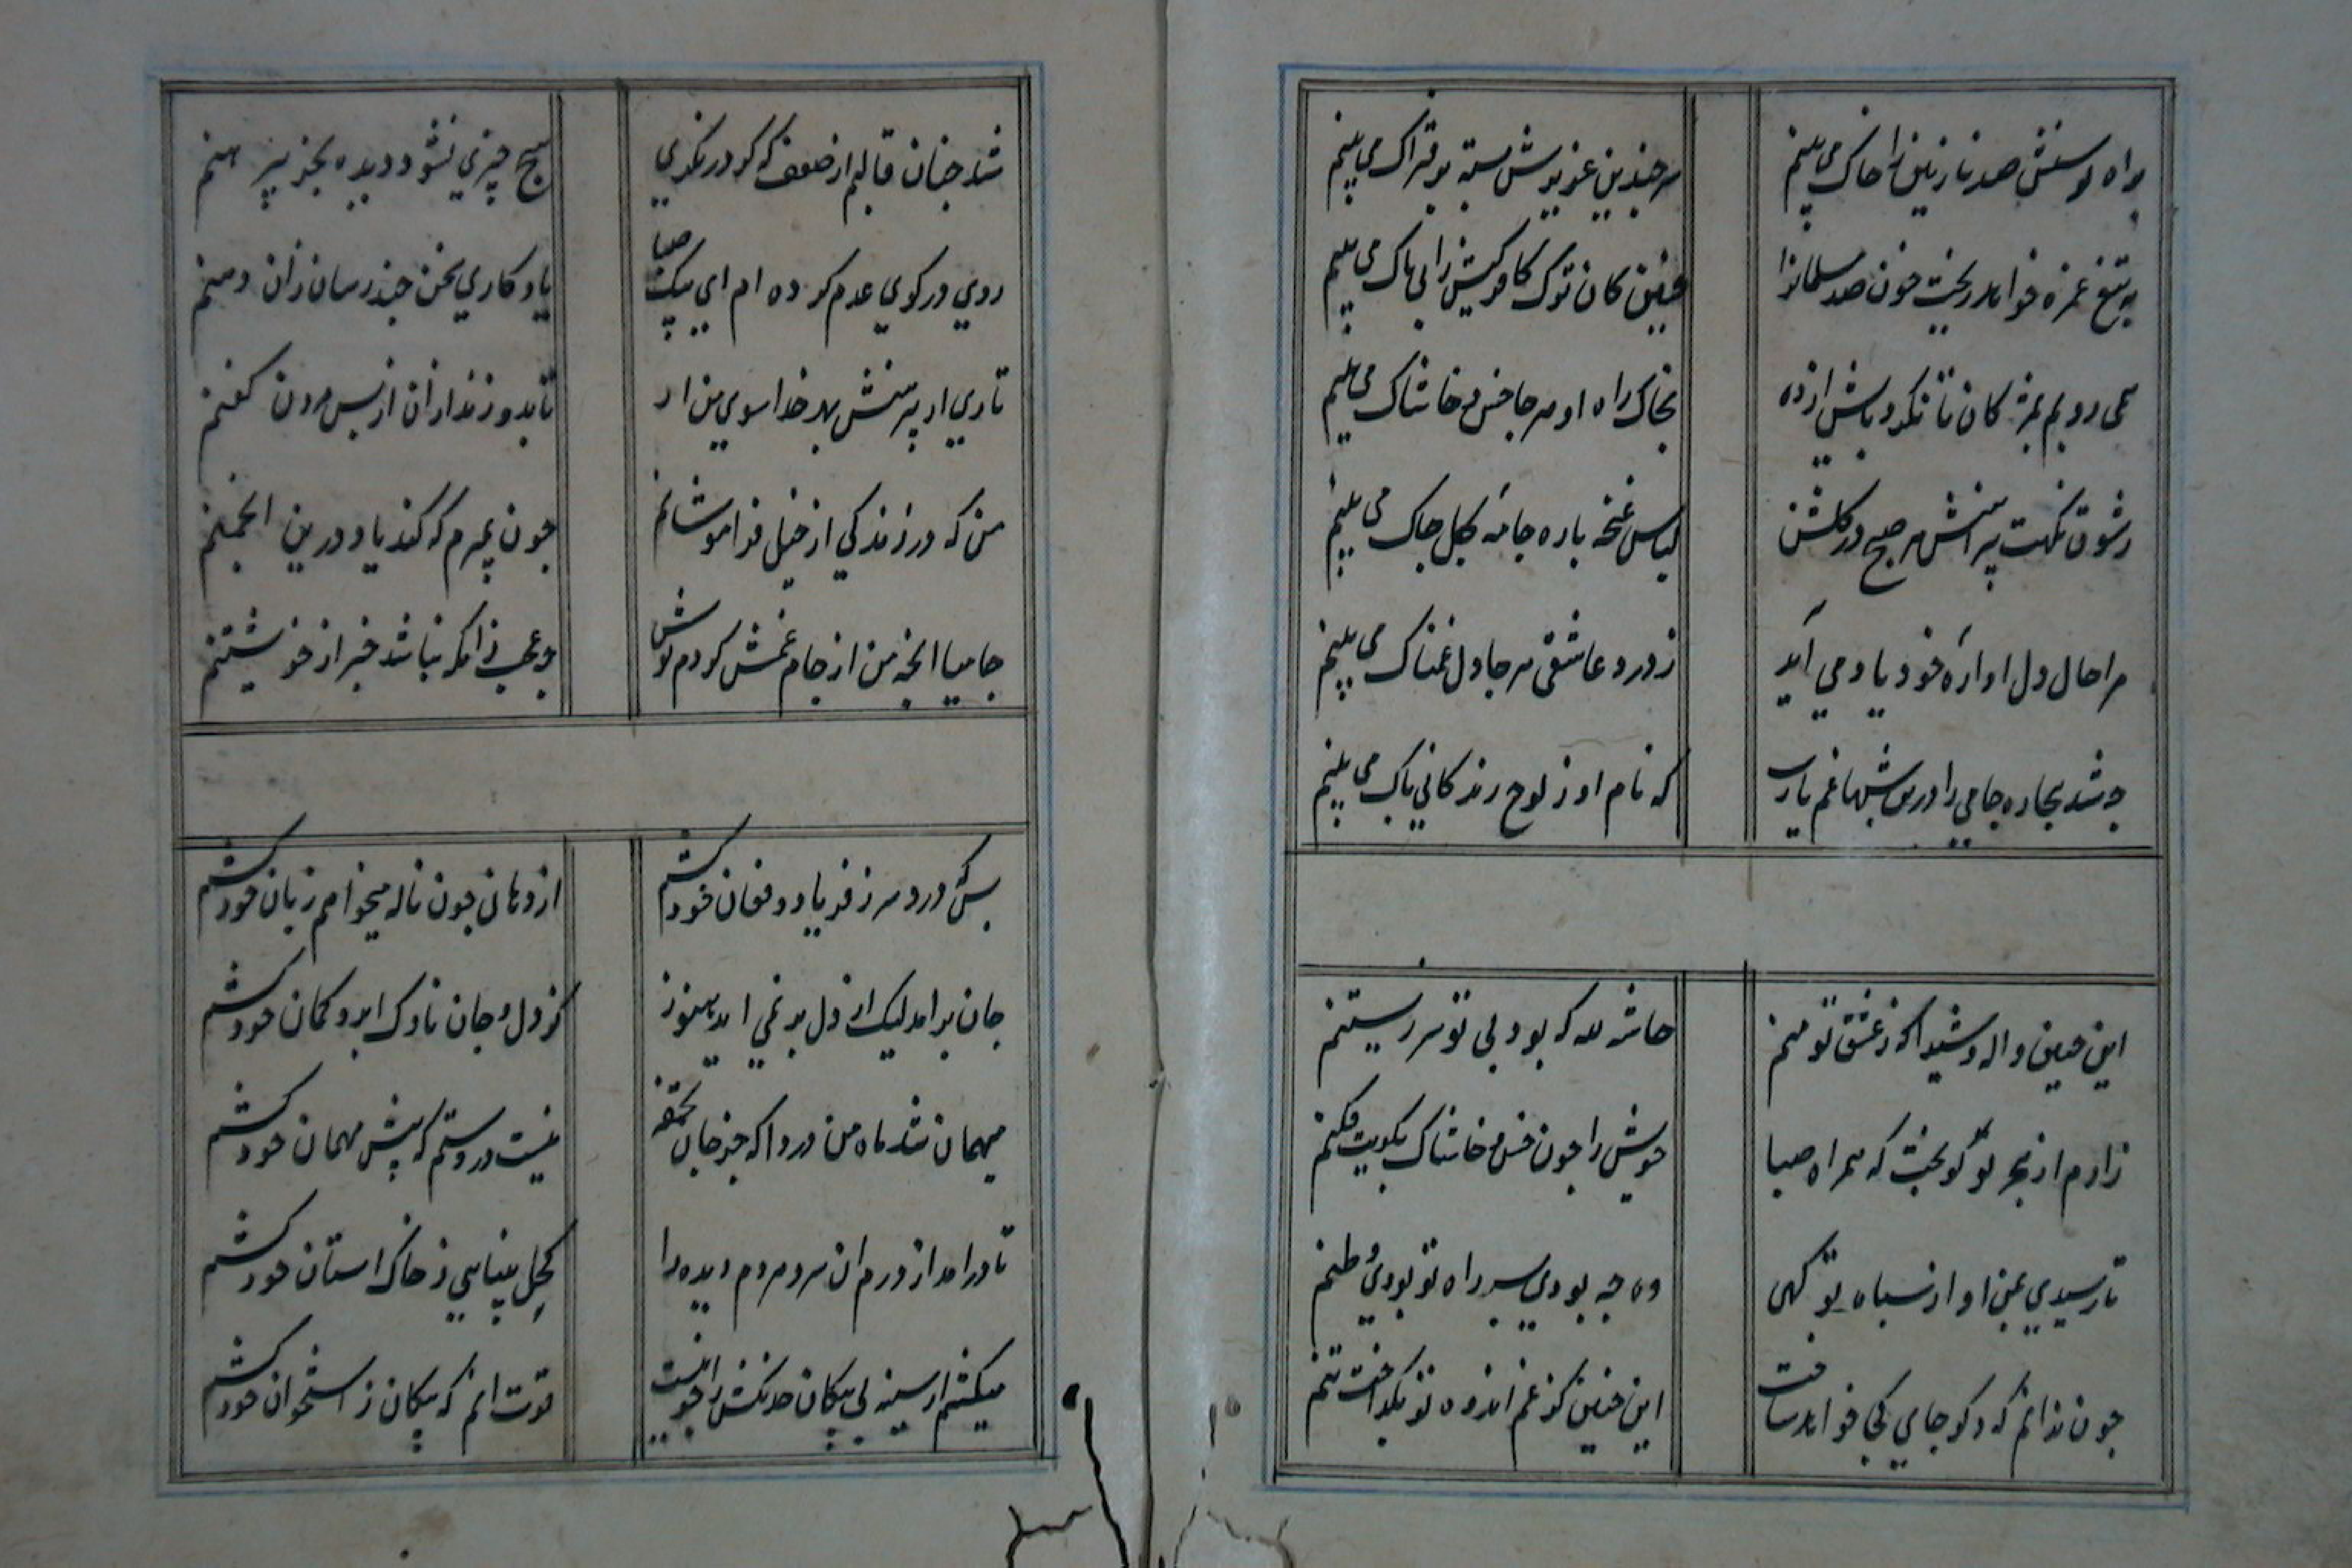 براه توسنش صد نازنین را خاک می بینم
سر چندین عزیزش بسته بر فتراک می بینم
به تیغ غمزه خواهد ریخت خون صد مسلمانرا
چنین کان ترک کافر کیش را بی باک می بینم
همی روبم بمژکان تا نکردد پاش ازده
بخاک راه او هر جا خس و خاشاک می بینم
زشوق نکهت پیراهنش هر صبح در کلشن
لباس غنچه باره جامهٔ کل چاک می بینم
مرا حال دل اوارهٔ خود یاد می آید
ز درد عاشقی هر جا دل غمناک می بینم
چه شد بیچاره جامی را درین شبها غم یارب
که نام او ز لوح زندکانی پاک می بینم
این چنین واله و شیدا که ز عشق تو منم
حاش لله که بود بی تو سر زیستنم
زارم از هجر تو کو بخت که همراه صبا
خویش را چون خس و خاشاک بکویت فکنم
تا رسیدی بمن اواز سپاه تو کهی
وه چه بودی بسر راه تو بودی وطنم
چون ندانم که دکر جای کجا خواهد ساخت
این چنین کز غم اندوه تو بکداخت تنم
شد چنان قالبم از ضعف که کر در نکری
هیچ چیزی نشود دیده بجز پیرهنم
روی در کوی عدم کرده ام ای پیک صبا
یادکاری بمن چند رسان زان دهنم
تاری از پیرهنش بهر خدا سوی من ار
تا بدوزند ازان از پس مردن کفنم
من که در زندکی از خیل فراموشانم
چون بمیرم که کند یاد درین انجمنم
جامیا انچه من از جام غمش کردم نوش
چه عجب زانکه نباشد خبر از خویشتنم
بس که درد سر ز فریاد و فغان خود کشم
از دهانی چون ناله میخواهم زبان خود کشم
جان برامد لیک از دل بر نمی اید هنوز
کز دل و جان ناوک ابرو کمان خود کشم
میهمان شد ماه من دردا که جز جان تحفهٔ
نیست در دستم که پیش میهمان خود کشم
تا درامد از درم ان سرو مردم دیده را
کحل بینایی ز خاک استان خود کشم
میکشم از سینه بی پیکان خدنکش را چو نیست
قوت انم که پیکان ز استخوان خود کشم